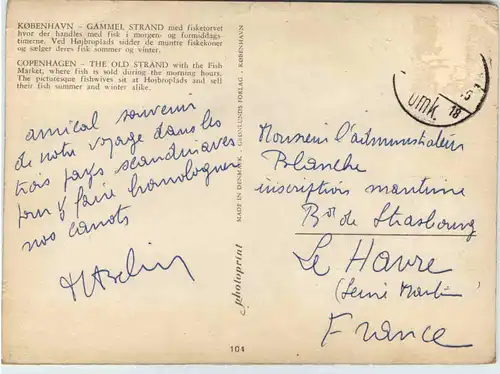 KØBENHAVN - GAMMEL STRAND med fisketorvet
hvor der handles med fisk i morgen- og formiddags-
timerne. Ved Højbroplads sidder de muntre fiskekoner
og sælger deres fisk sommer og vinter.
COPENHAGEN - THE OLD STRAND with the Fish
Market, where fish is sold during the morning hours.
The picturesque fishwives sit at Højbroplads and sell
their fish summer and winter alike.
amical souvenir
de notre voyage dans les
trois pays scandinaves
pour y faire homologuer
nos canots
photoprint
MADE IN DENMARK - GRØNLUNDS FORLAG - KØBENHAVN
OMK.
18
Monsieur l'administrateur
Blanche
inscription maritime
Bd de Strasbourg
Le Havre
(Seine Marit.)
France
104